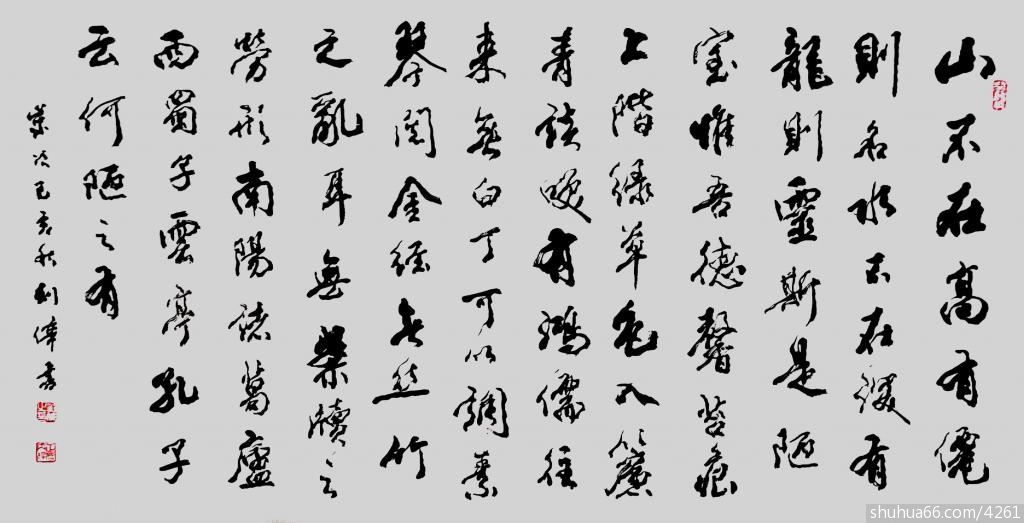 山不在高有僊
則名水不在深有
龍則靈斯是陋
室惟吾德馨苔痕
上階綠草色入簾
青談笑有鴻儒往
来無白丁可以調素
琴閱金經無絲竹
之亂耳無案牘之
勞形南陽諸葛廬
西蜀子雲亭孔子
云何陋之有
歲次己亥秋偉書
shuhua66.com/4261